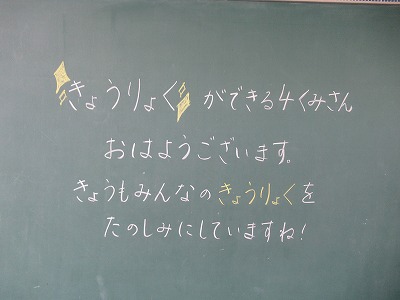 きょうりょく ができる4くみさん
おはようございます。
きょうもみんなのきょうりょくを
たのしみにしていますね!